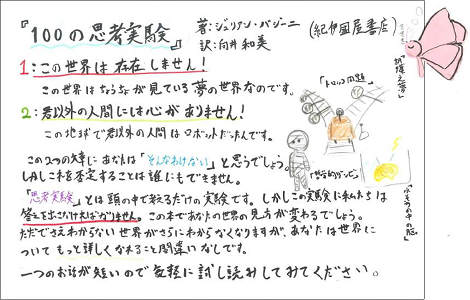 『100の思考実験』
著:ジュリアン・バジーニ
訳:向井和美
(紀伊國屋書店)
1:この世界は存在しません!
この世界はちょうちょが見ている夢の世界なのです。
2:君以外の人間には心がありません!
この地球で君以外の人間はロボットだったんです。
この2つの文章にあなたは「そんなわけない」と思うでしょう。
しかしこれを否定することは誰にもできません。
「思考実験」とは頭の中で考えるだけの実験です。しかしこの実験に私たちは
答えを出さなければなりません。この本であなたの世界の見方が変わるでしょう。
ただでさえわからない世界がさらにわからなくなりますが、あなたは世界に
ついてもっと詳しくなれること間違いなしです。
一つのお話が短いので気軽に試し読みしてみてください。
「トロッコ問題」
「胡蝶之夢」
「哲学的ゾンビ」
「水そうの中の脳」